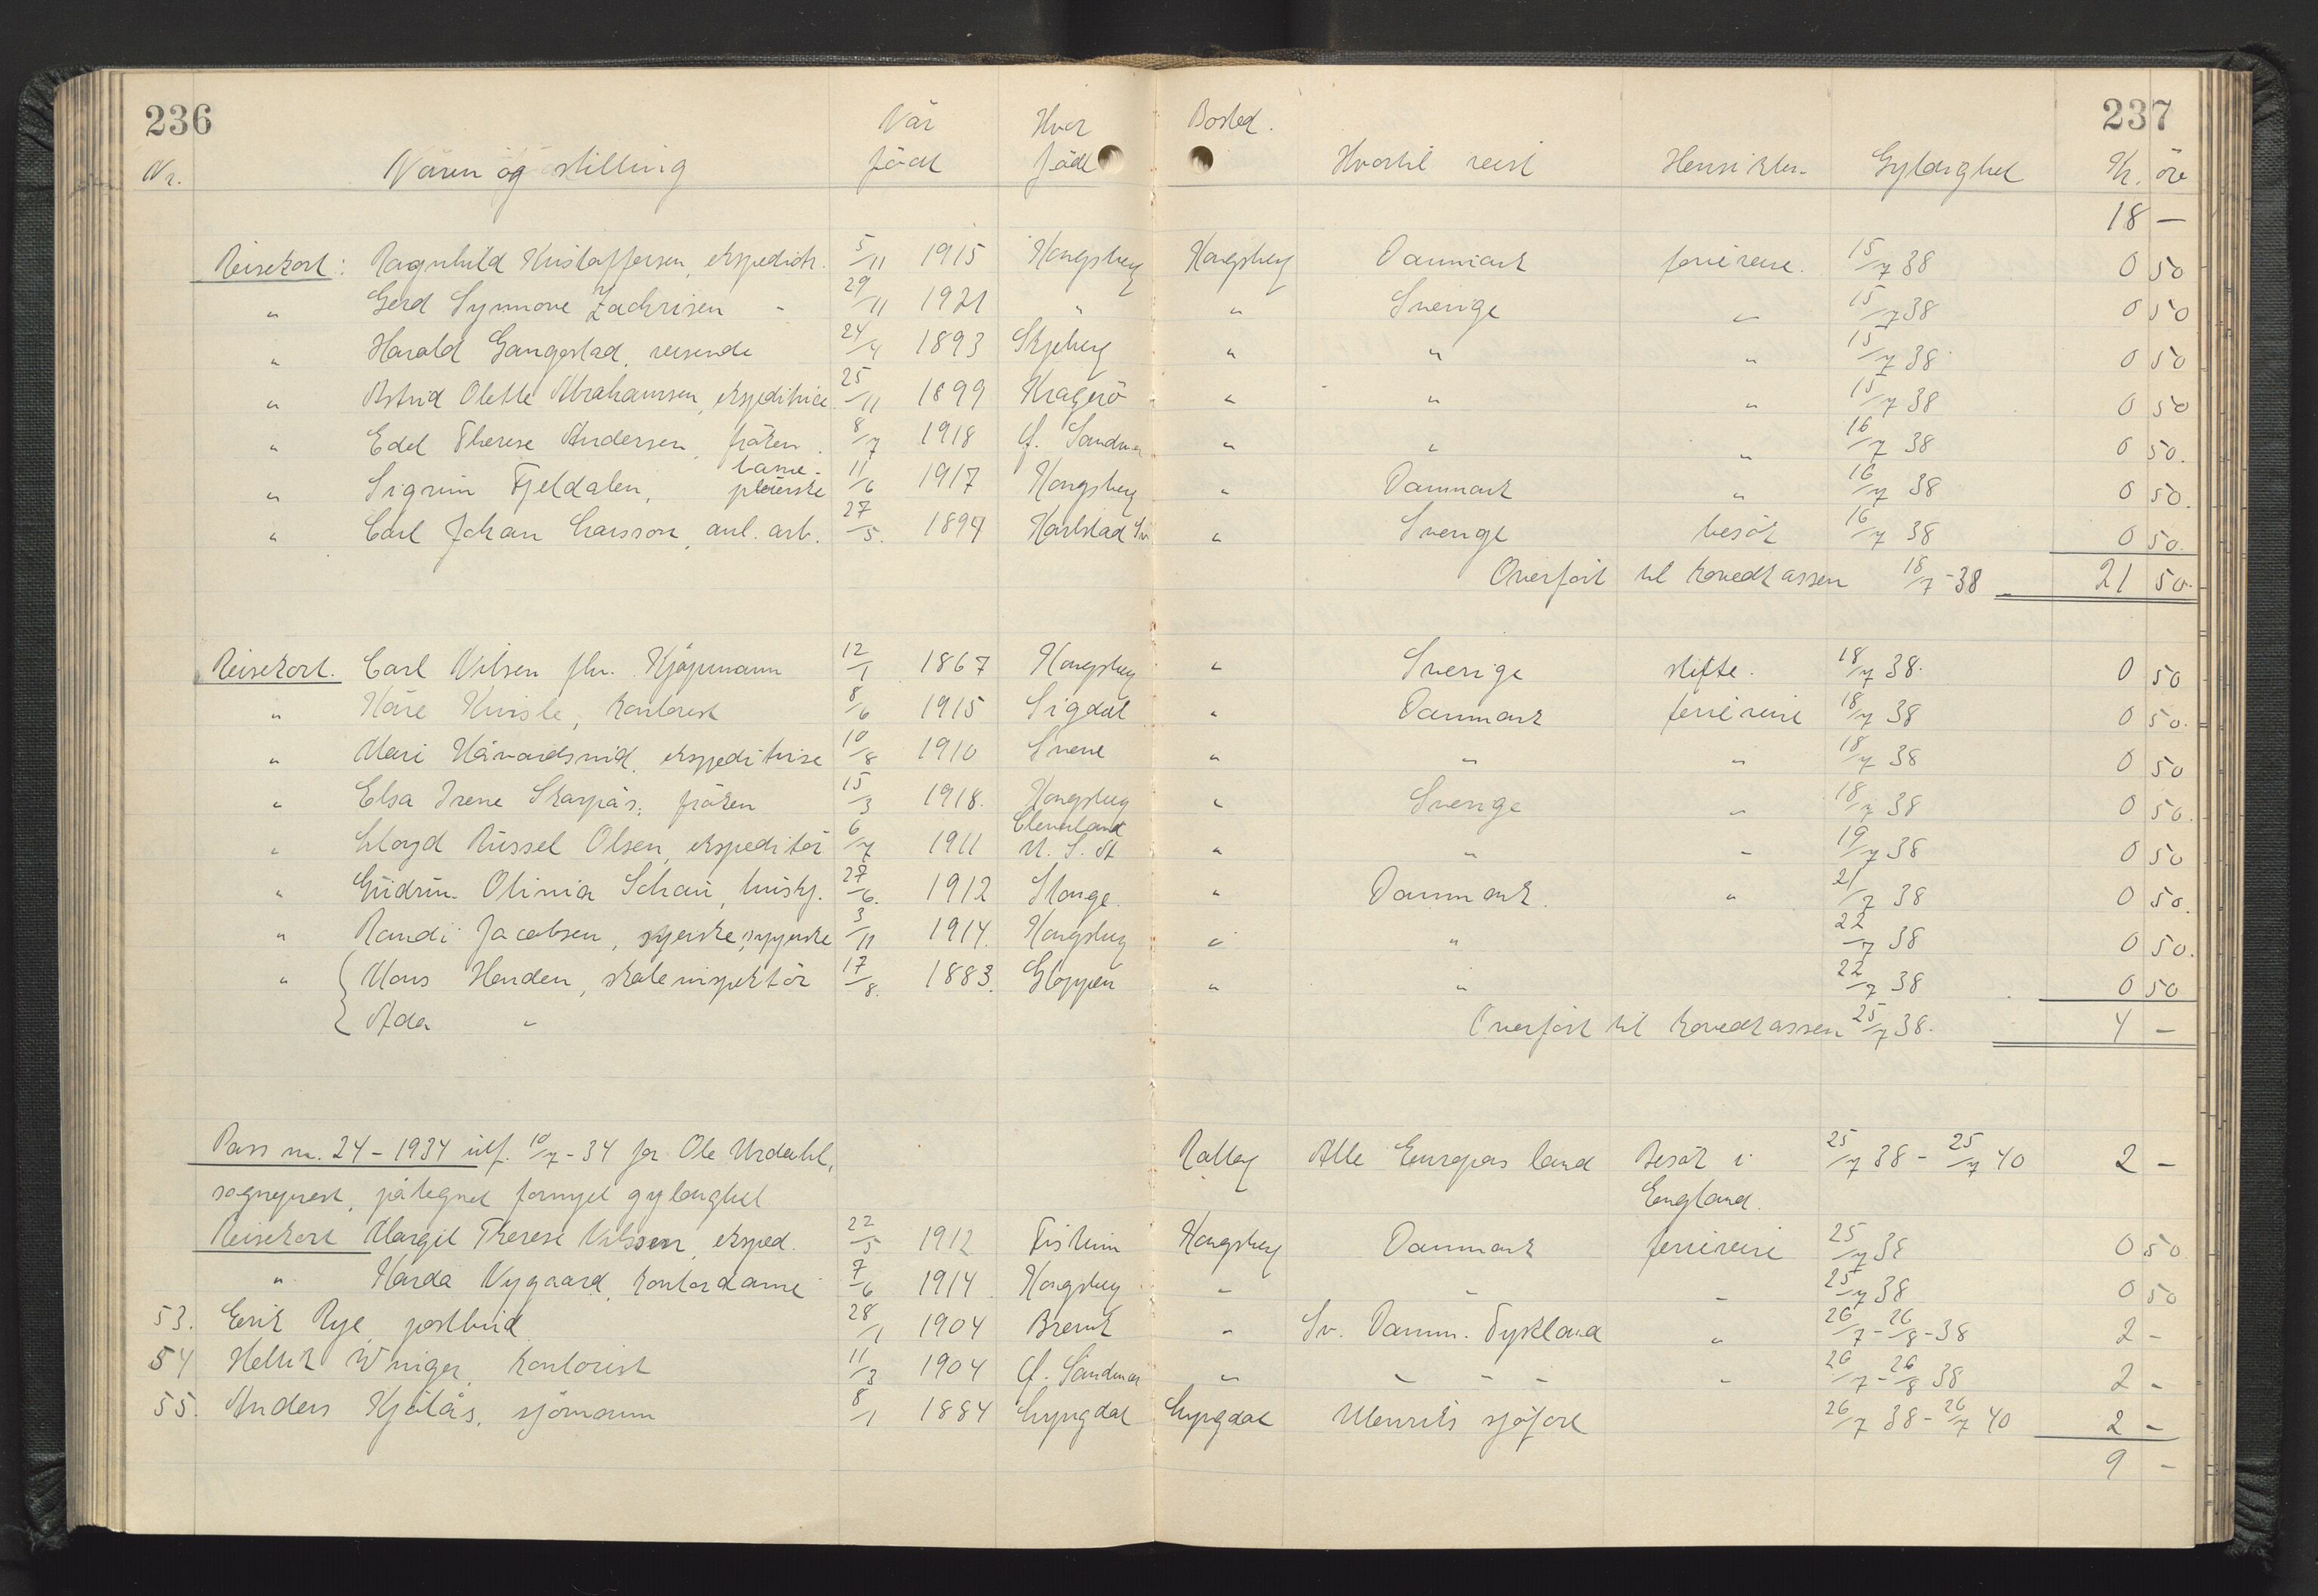 236
237
Nr. Navn og stilling Når födt Hvor födt Bosted. Hvortil reist Hensikten Gyldighet Kr. öre
18 –
Reisekort: Ragnhild Kristoffersen, ekspeditr. 5/11 1915 Kongsberg Kongsberg Danmark feriereise. 15/7 38 0 50
" Gerd Synnøve Zachrisen " 29/11 1921 " " Sverige " 15/7 38 0 50
" Harald Gangestad, reisende 24/4 1893 Skjeberg " " " 15/7 38 0 50
" Astrid Olette Abrahamsen, ekspeditrise 25/11 1899 Kragerö " " " 15/7 38 0 50
" Edel Therese Andersen, fröken. 8/7 1918 Ö. Sandsvær " " " 16/7 38 0 50.
" Sigrun Fjeldalen, barnepleierske 11/6 1917 Kongsberg " Danmark " 16/7 38 0 50.
" Carl Johan Larsson, anl. arb. 27/5. 1894 Karlstad Sv. " Sverige besök 16/7 38 0 50.
Overfört til hovedkassen 18/7-38 21 50.
Reisekort. Carl Nilsen fhv. Kjöpmann 12/1 1867 Kongsberg " Sverige skifte. 18/7 38. 0 50
" Kåre Kvisle, kontorist 8/6 1915 Sigdal " Danmark feriereise 18/7 38 0 50.
" Mari Håvardsrud, ekspeditrise 10/8 1910 Svene " " " 18/7 38 0 50
" Elsa Irene Skarpås, fröken 15/3 1918. Kongsberg " Sverige " 18/7 38 0 50.
" Lloyd Russel Olsen, ekspeditör 6/7 1911 Cleveland U. S. A " " " 19/7 38 0 50
" Gudrun Olinia Schau, huskj. 27/6. 1912 Stange. " Danmark. " 21/7 38 0 50.
" Randi Jacobsen, syerske 3/11 1914. Kongsberg " " 22/7 38 0 50.
" { Mons Henden, skoleinspektör 17/8. 1883. Gloppen " " 22/7 38 0 50
{ Ada "
Overfört til hovedkassen 25/7 38. 4 –
Pass nr. 24 – 1934 utf. 10/7-34 for Ole Urdahl, Rollag Alle Europas land Besök i 25/7 38 - 25/7 40 2 –
sogneprest, påtegnet fornyet gyldighet England.
Reisekort Margit Therese Nilssen, eksped. 22/5 1912 Fiskum Kongsberg Danmark feriereise 25/7 38 0 50
" Harda Nygaard, kontordame 7/6 1914 Kongsberg " " " 25/7 38 0 50
53. Erik Rye, postbud 28/1 1904 Brevik " Sv. Danm. Tyskland " 26/7 - 26/8 -38 2 –
54 Hellik Winger, kontorist 11/3 1904 Ö. Sandsvær " " " " " 26/7 - 26/8 38 2 –
55. Anders Kjölås, sjömann 8/1 1884 Lyngdal Lyngdal Utenriks sjöfart 26/7 38 - 26/7 40 2 –
9 –